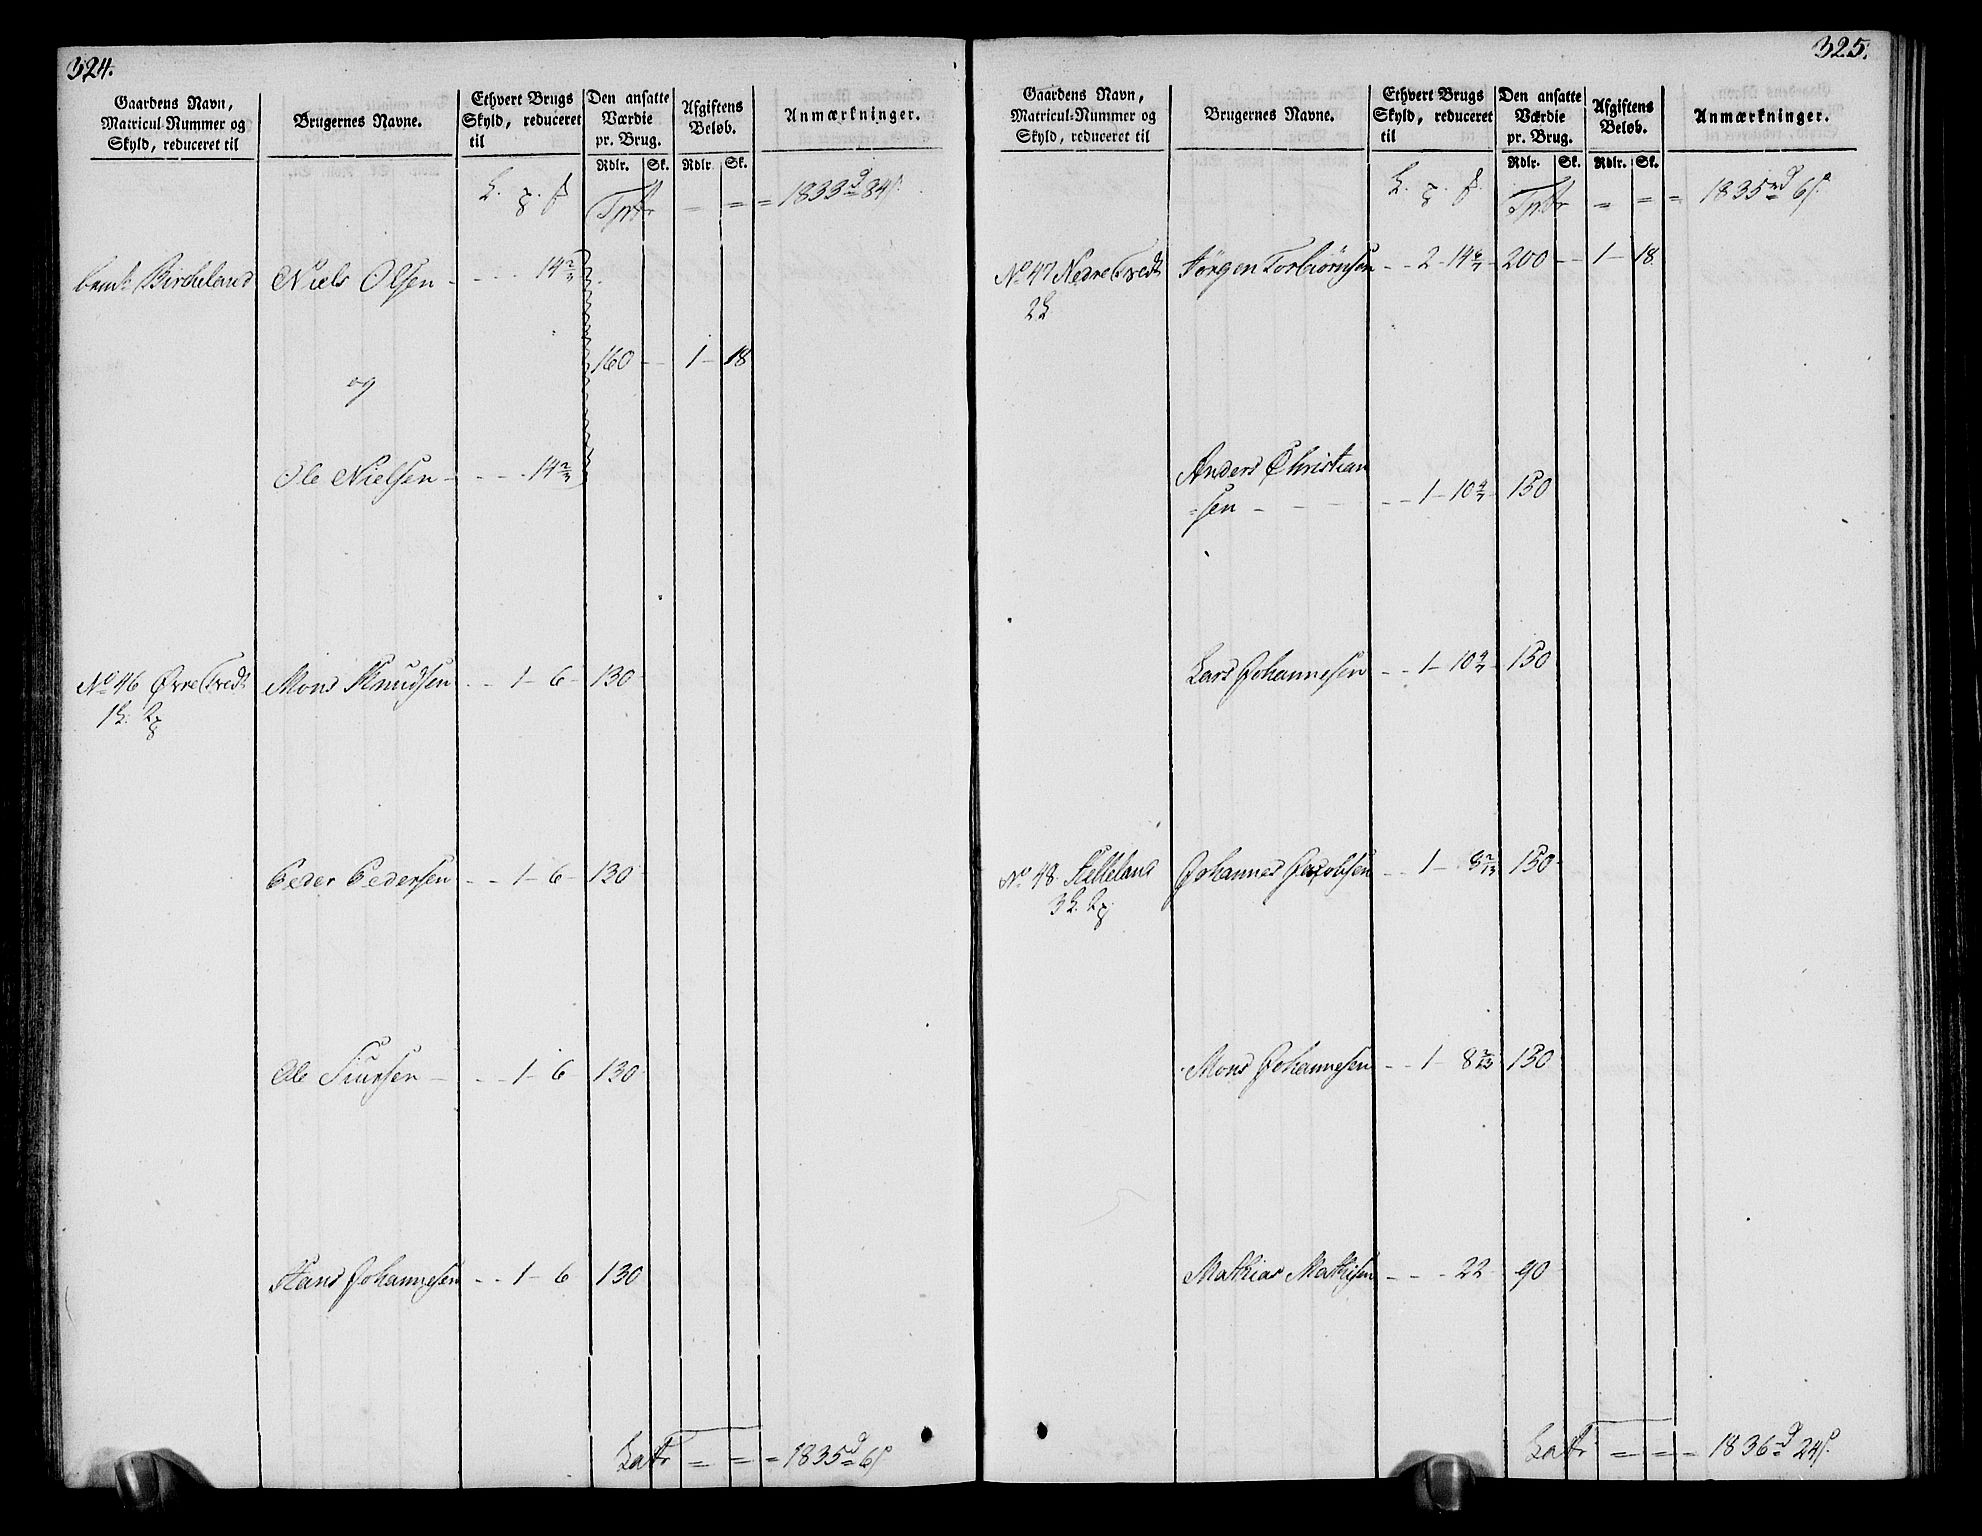 324.
Gaardens Navn, Matricul-Nummer og Skyld, reduceret til
Brugernes Navne.
Ethvert Brugs Skyld, reduceret til
Den ansatte Værdie pr. Brug.
Afgiftens Beløb.
Anmærkninger.
Rdlr. Sk. Rdlr. Sk.
Tprtr = = = 1833d 84s.
Birckeland Niels Olsen - - - 14 2/3
160 - 1 - 18
og
Ole Nielsen - - - 14 2/3
No 46 Øvre Tvedt Mons Knudsen - - 1 - 6 - 130
Peder Pedersen - - 1 - 6 - 130
Ole Siursen - - - 1 - 6 130
Hans Johannesen - - 1 - 6 130
Latr = = = 1835d 6s
325.
Gaardens Navn, Matricul-Nummer og Skyld, reduceret til
Brugernes Navne.
Ethvert Brugs Skyld, reduceret til
Den ansatte Værdie pr. Brug.
Afgiftens Beløb.
Anmærkninger.
Rdlr. Sk. Rdlr. Sk.
Tprtr = = = 1835rd 6s
No 47 Nedre Tvedt Jørgen Torbiörnsen - - 2 - 14 6/7 - 200 - - 1 - 18
Anders Christian
=sen - - - - - 1 - 10 2/7 150
Lars Johannesen - - 1 - 10 2/7 - 150
No 48. Helleland Johannes Jacobsen - - 1 - 8 2/13 150
Mons Johannesen - - 1 - 8 2/13 150
Mathias Mathisen - - - 22 - 90
Latr = = = 1836rd 24s.